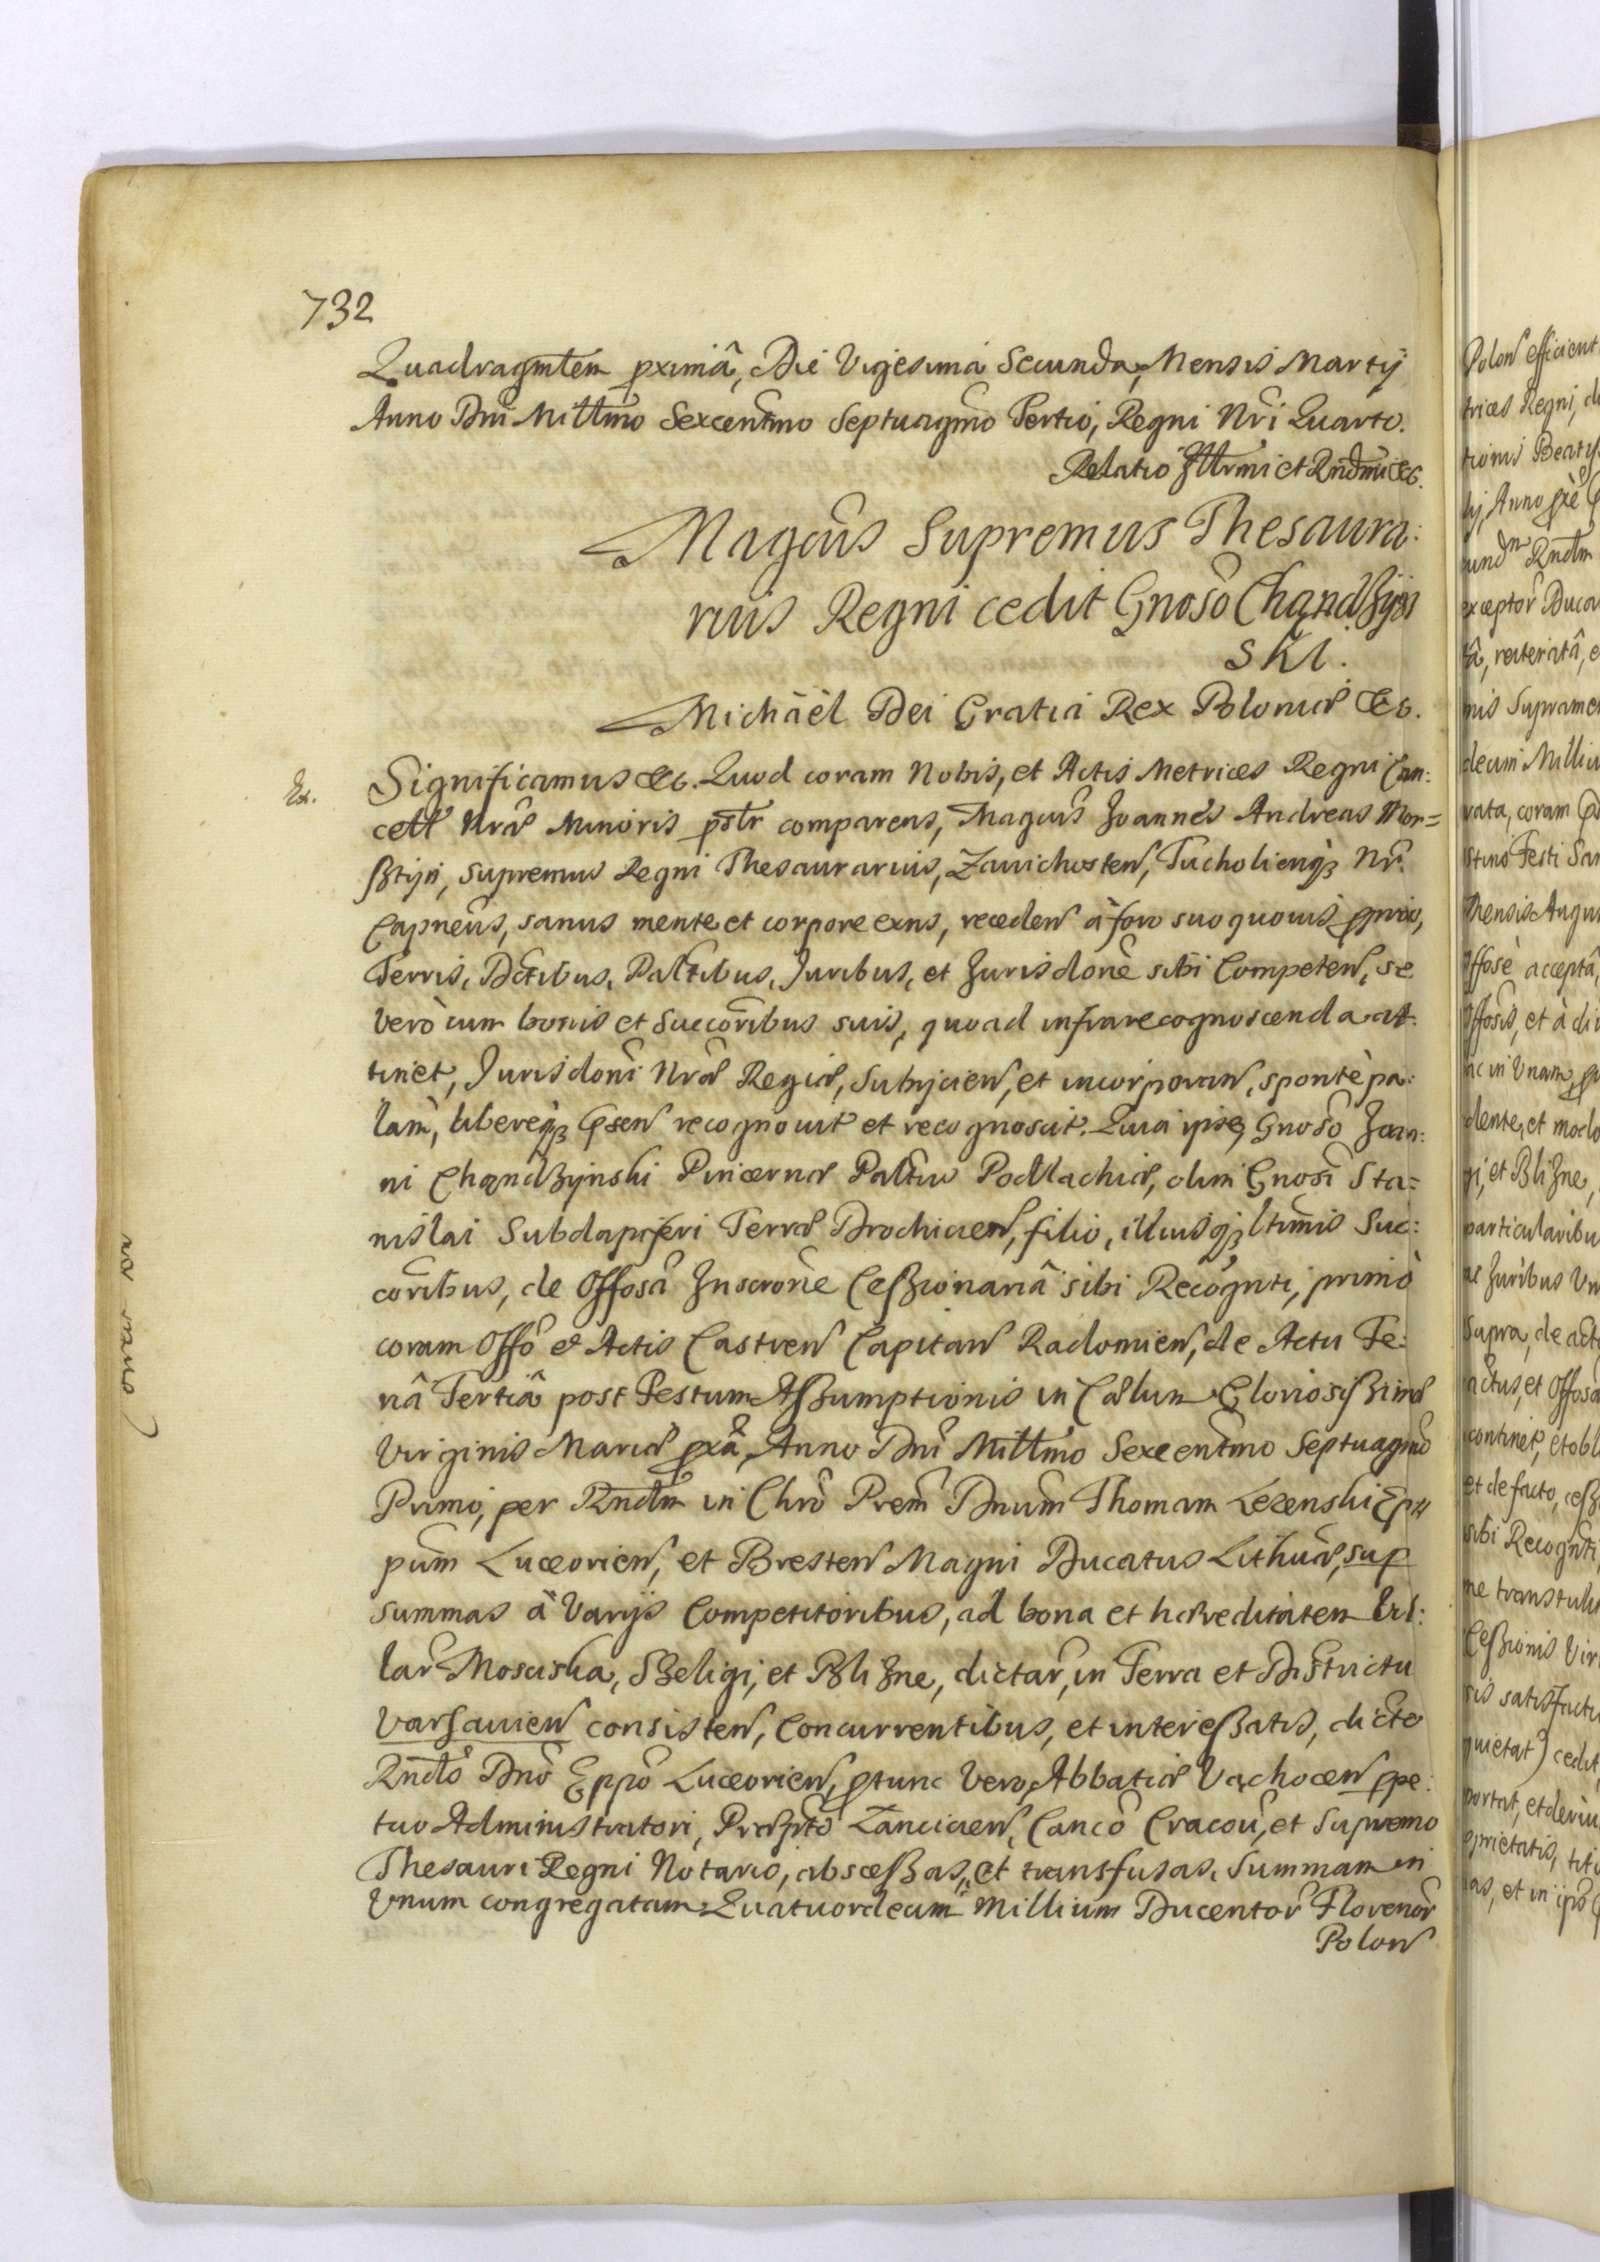 732
Quadragmlem pximâ, Die Vigesima Secunda, Mensis Martij
Anno Dni Millmo Sexcentmo Septuagmo Tertio, Regni Nri Quarto.
Relatio Illrmi et Rndmi &c.
Magcus Supremus Thesaura:
rius Regni cedit Gnoso Chandzyn
ski.
Michaèl Dei Gratia Rex Poloniæ &c.
Ex.
Significamus &c. Quod coram Nobis, et Actis Metrices Regni Can:
cell Nræ Minoris pslr comparens, Magcus Joannes Andreas Mor=
sztyn, Supremus Regni Thesaurarius, Zawichosten, Tucholienq3 Nr.
Capneus, sanus mente et corpore exns, receden à foro suo quovis pprio,
Terris, Dctibus, Paltibus, Juribus, et Jurisdone sibi Competen, se
verò cum bonis et Succoribus suis, quoad infra recognoscenda at:
tinet, Jurisdoni Nræ Regiæ, Subijcien, et incorporan, spontè pa:
lam, libereq3 psen recognovit et recognoscit. Quia ipse, Gnoso Joan:
ni Chandzynski Pincernæ Paltus Podlachiæ, olim Gnosi Sta=
nislai Subdapiferi Terræ Drohicien, filio, illiusq3 ltimis Suc:
coribus, de Offosa Inscrone Ceszionariâ sibi Recognti, primò
coram Offo et Actis Castren Capitan Radomien, de Actu Fe:
riâ Tertiâ post Festum Aszumptionis in Cælum Gloriosiszimæ
Virginis Mariæ pxâ, Anno Dni Millmo Sexcentmo Septuagmo
Primo, per Rndm in Chro Prem Dnum Thomam Lezenski Epis
pum Luceorien, et Bresten Magni Ducatus Lithuæ, sup
summas â Varijs Competitoribus, ad bona et hæreditatem Vil:
lar Mosciska, Szeligi, et Blizne, dictar, in Terra et Districtu
Varsavien consisten, Concurrentibus, et intereszatis, dicto
Rndo Dno Eppo Luceorien, ptunc Vero, Abbatiæ Vachocen ppe:
tuo Administratori, Præpto Lancicien, Canco Cracou, et Supremo
Thesauri Regni Notario, absceszas, et transfusas, Summam in
Vnum congregatam Quatuordecim Millium Ducentor Florenor
Polon